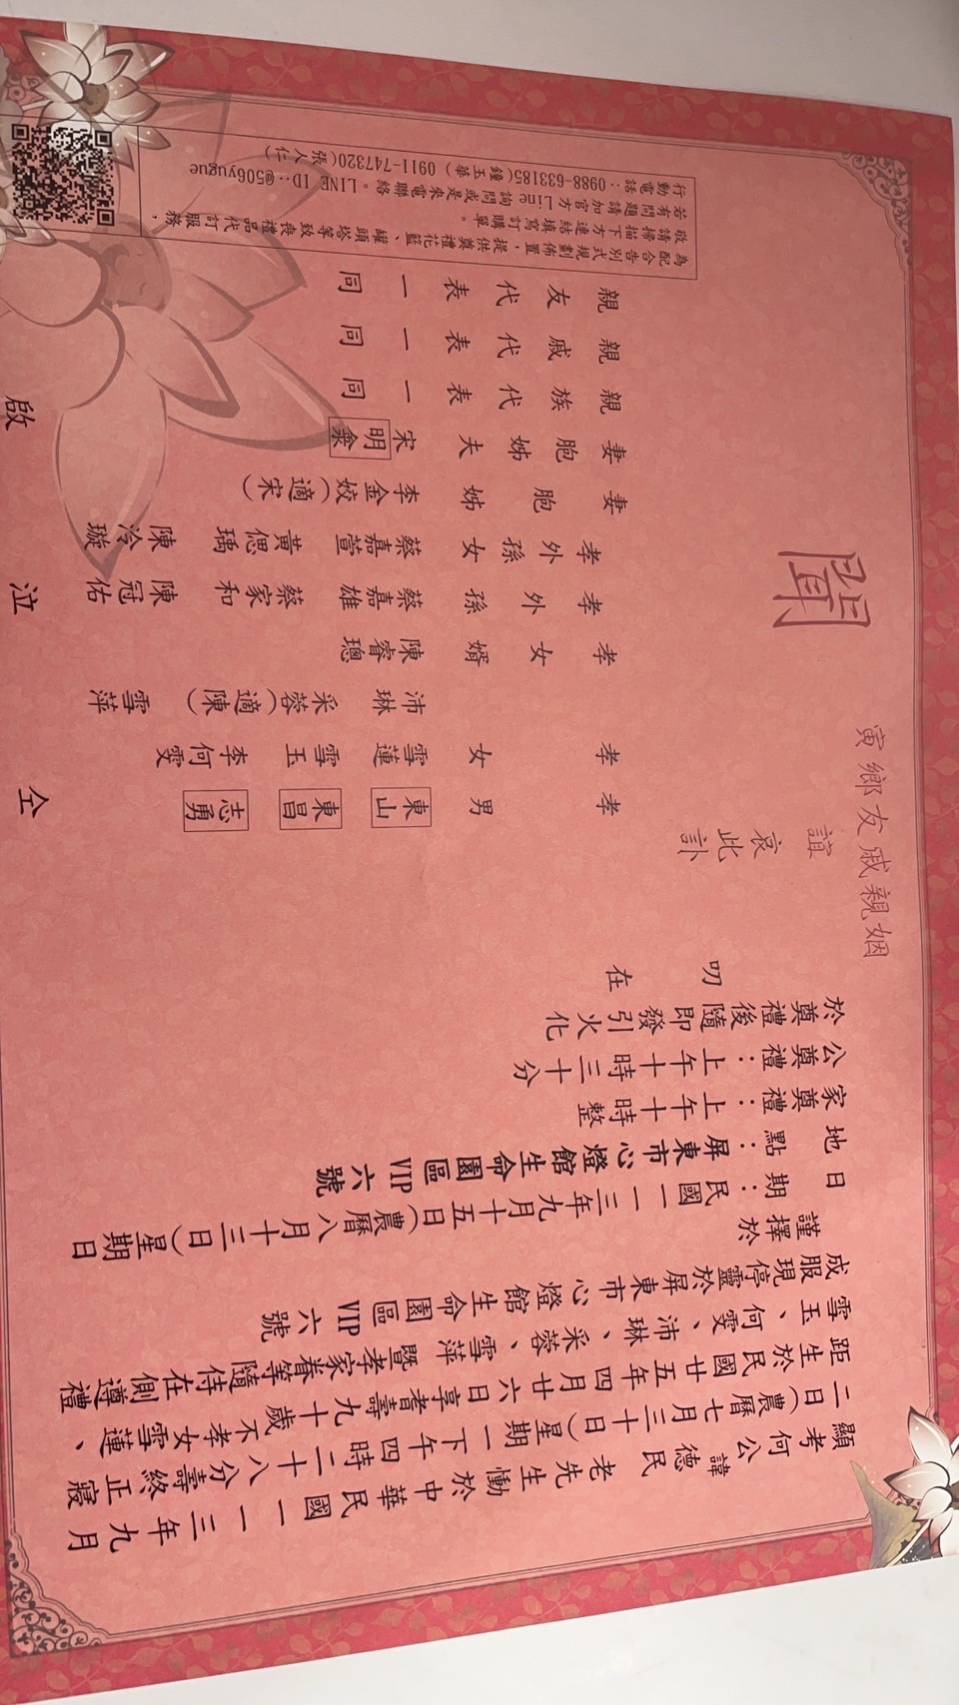 顯考何公諱德民老先生慟於中華民國一一三年九月
二日(農曆七月三十日)星期一下午四時二十八分壽終正寢
距生於民國廿五年四月廿六日享耆壽九十歲不孝女雪蓮、
雪玉、何雯、沛琳、采蓉、雪萍暨孝家眷等隨侍在側遵禮
成服現停靈於屏東市心燈館生命園區VIP六號
謹擇於
日期：民國一一三年九月十五日(農曆八月十三日)星期日
地點：屏東市心燈館生命園區VIP六號
家奠禮：上午十時整
公奠禮：上午十時三十分
於奠禮後隨即發引火化
叨在
姻親戚友鄉寅
誼
哀此訃
聞
孝男 東山 東昌 志勇
孝女 雪蓮 雪玉 李何雯
沛琳 采蓉(適陳) 雪萍
孝女婿 陳睿聰
孝外孫 蔡嘉雄 蔡家和 陳冠佑
孝外孫女 蔡嘉萱 黃偲瑀 陳泠璇
妻胞姊 李金姣(適宋)
妻胞姊夫 宋明彙
親族代表一同
親戚代表一同
親友代表一同
仝泣啟
為配合告別式規劃佈置，提供奠禮花籃、罐頭塔等致喪禮品代訂服務，
敬請掃描下方連結填寫訂購單。
若有問題請加官方Line詢問或是來電聯絡。LINE ID：@506yugue
行動電話：0988-633185(鐘玉華) 0911-747320(張人仁)